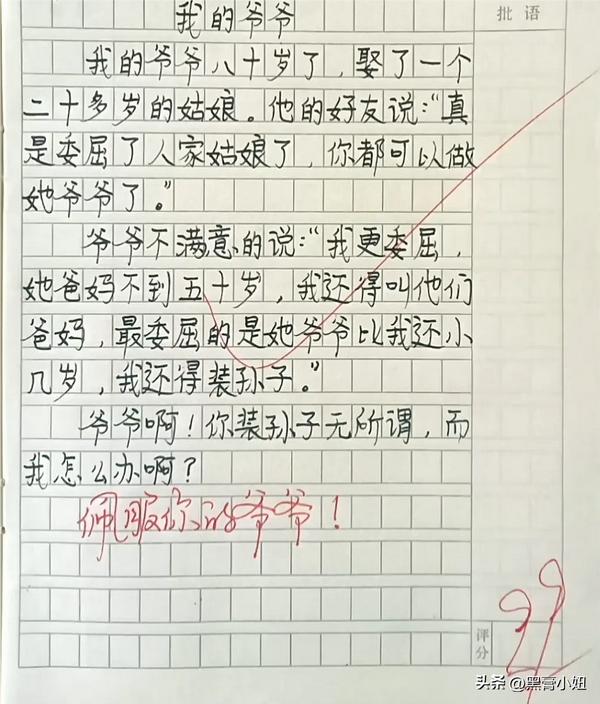 我的爷爷
批语
我的爷爷八十岁了，娶了一个
二十多岁的姑娘。他的好友说：“真
是委屈了人家姑娘了，你都可以做
她爷爷了。”
爷爷不满意的说：“我更委屈，
她爸妈不到五十岁，我还得叫他们
爸妈，最委屈的是她爷爷比我还小
几岁，我还得装孙子。”
爷爷啊！你装孙子无所谓，而
我怎么办啊？
佩服你的爷爷！
99
评分
头条 @黑膏小姐